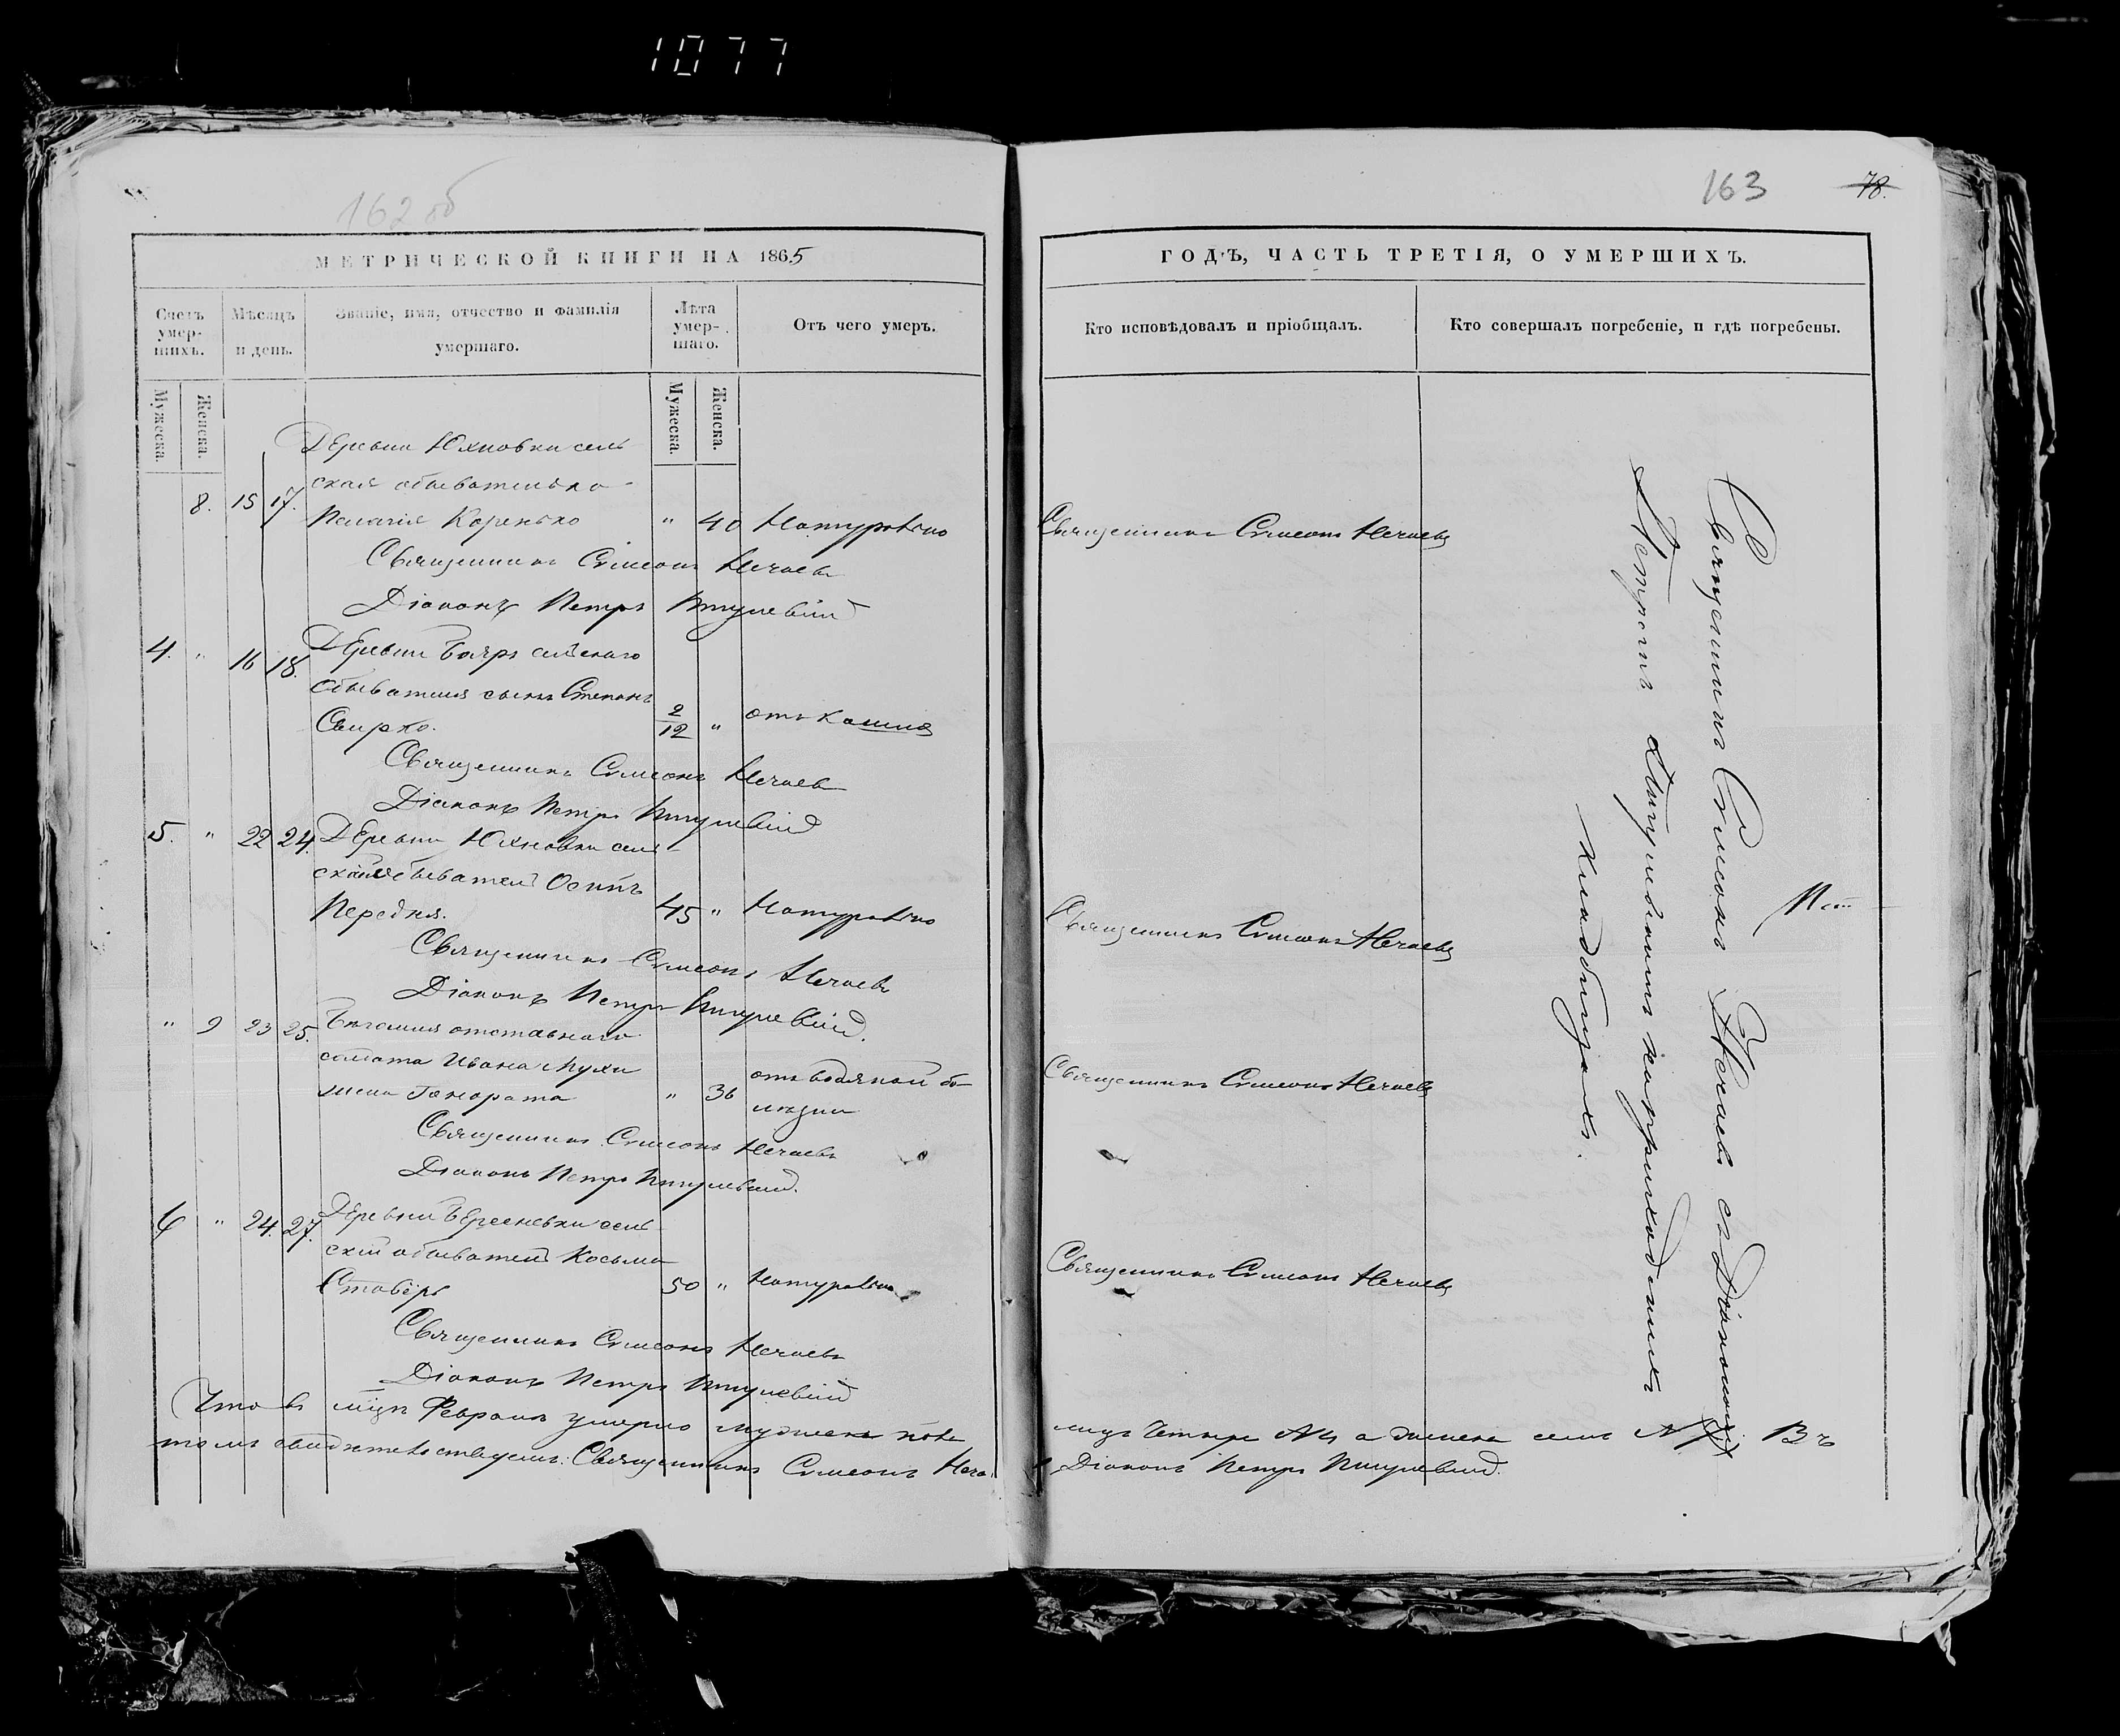 1077
162 об
МЕТРИЧЕСКОЙ КНИГИ НА 1865
Счетъ умер-шихъ.
Мѣсяцъ и день.
Званіе, имя, отчество и фамилія умершаго.
Лѣта умер-шаго.
Отъ чего умеръ.
Мужеска.
Женска.
Мужеска.
Женска.
Деревни Юхновки сель
ская обывателька
8. 15 17. Пелагія Коренько " 40 Натурально
Священникъ Симеонъ Нечаевъ
Діаконъ Петръ
4. " 16 18. Деревни Бояръ сельскаго
обывателя сынъ Степанъ
Свирко. 2/12 " отъ кашля
Священникъ Симеонъ Нечаевъ
Діаконъ Петръ
5. " 22 24. Деревни Юхновки сель
скій обыватель Осипъ
Передня. 45 " Натурально
Священникъ Симеонъ Нечаевъ
Діаконъ Петръ
" 9 23 25. отставнаго
солдата Ивана
жена Гонората " 36 отъ водяной бо
лѣзни
Священникъ Симеонъ Нечаевъ
Діаконъ Петръ
6 " 24. 27. Деревни сель
скій обыватель Косьма
50 " Натурально
Священникъ Симеонъ Нечаевъ
Діаконъ Петръ
Что въ Февралѣ умерло мужеска пола
томъ свидѣтельствуемъ: Священникъ Симеонъ
163
78.
ГОДЪ, ЧАСТЬ ТРЕТІЯ, О УМЕРШИХЪ.
Кто исповѣдовалъ и пріобщалъ.
Кто совершалъ погребеніе, и гдѣ погребены.
Священникъ Симеонъ Нечаевъ
Священникъ Симеонъ Нечаевъ
Священникъ Симеонъ Нечаевъ
Священникъ Симеонъ Нечаевъ
Священникъ Симеонъ Нечаевъ съ Діакономъ
Пет
Петромъ на приходскомъ
кладбищѣ.
лицъ четыре №4 а женска семь № 7. Въ
Діаконъ Петръ